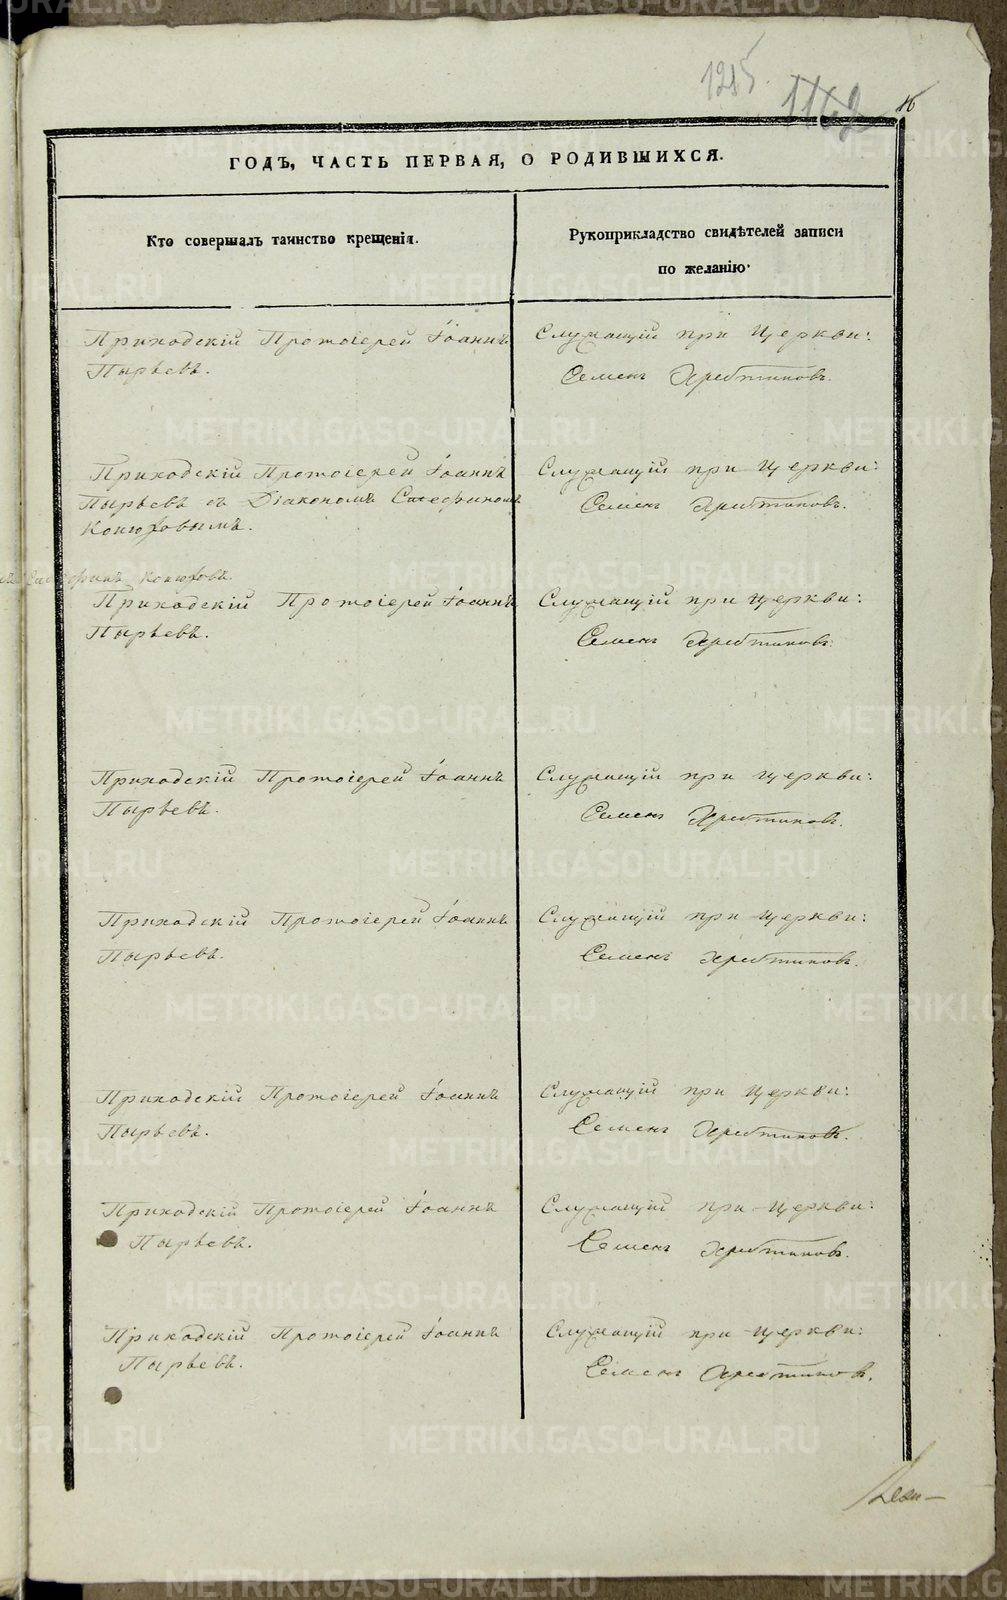 1215.
1162
16
ГОДЪ, ЧАСТЬ ПЕРВАЯ, О РОДИВШИХСЯ.
Кто совершалъ таинство крещенія.
Рукоприкладство свидѣтелей записи
по желанію.
Приходскій Протоіерей Іоаннъ
Пырьевъ.
Служащій при Церкви:
Семенъ Хребтиковъ.
Приходскій Протоіерей Іоаннъ
Пырьевъ съ Діакономъ
Конюховымъ.
Служащій при Церкви:
Семенъ Хребтиковъ.
Конюховъ.
Приходскій Протоіерей Іоаннъ
Пырьевъ.
Служащій при Церкви:
Семенъ Хребтиковъ.
Приходскій Протоіерей Іоаннъ
Пырьевъ.
Служащій при Церкви:
Семенъ Хребтиковъ.
Приходскій Протоіерей Іоаннъ
Пырьевъ.
Служащій при Церкви:
Семенъ Хребтиковъ.
Приходскій Протоіерей Іоаннъ
Пырьевъ.
Служащій при Церкви:
Семенъ Хребтиковъ.
Приходскій Протоіерей Іоаннъ
Пырьевъ.
Служащій при Церкви:
Семенъ Хребтиковъ.
Приходскій Протоіерей Іоаннъ
Пырьевъ.
Служащій при Церкви:
Семенъ Хребтиковъ.
METRIKI.GASO-URAL.RU